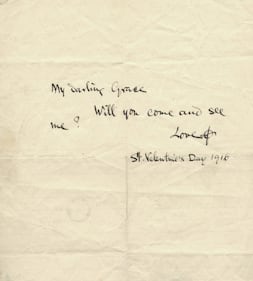 My darling Grace
Will you come and see
me?
Love
St. Valentine's Day 1916